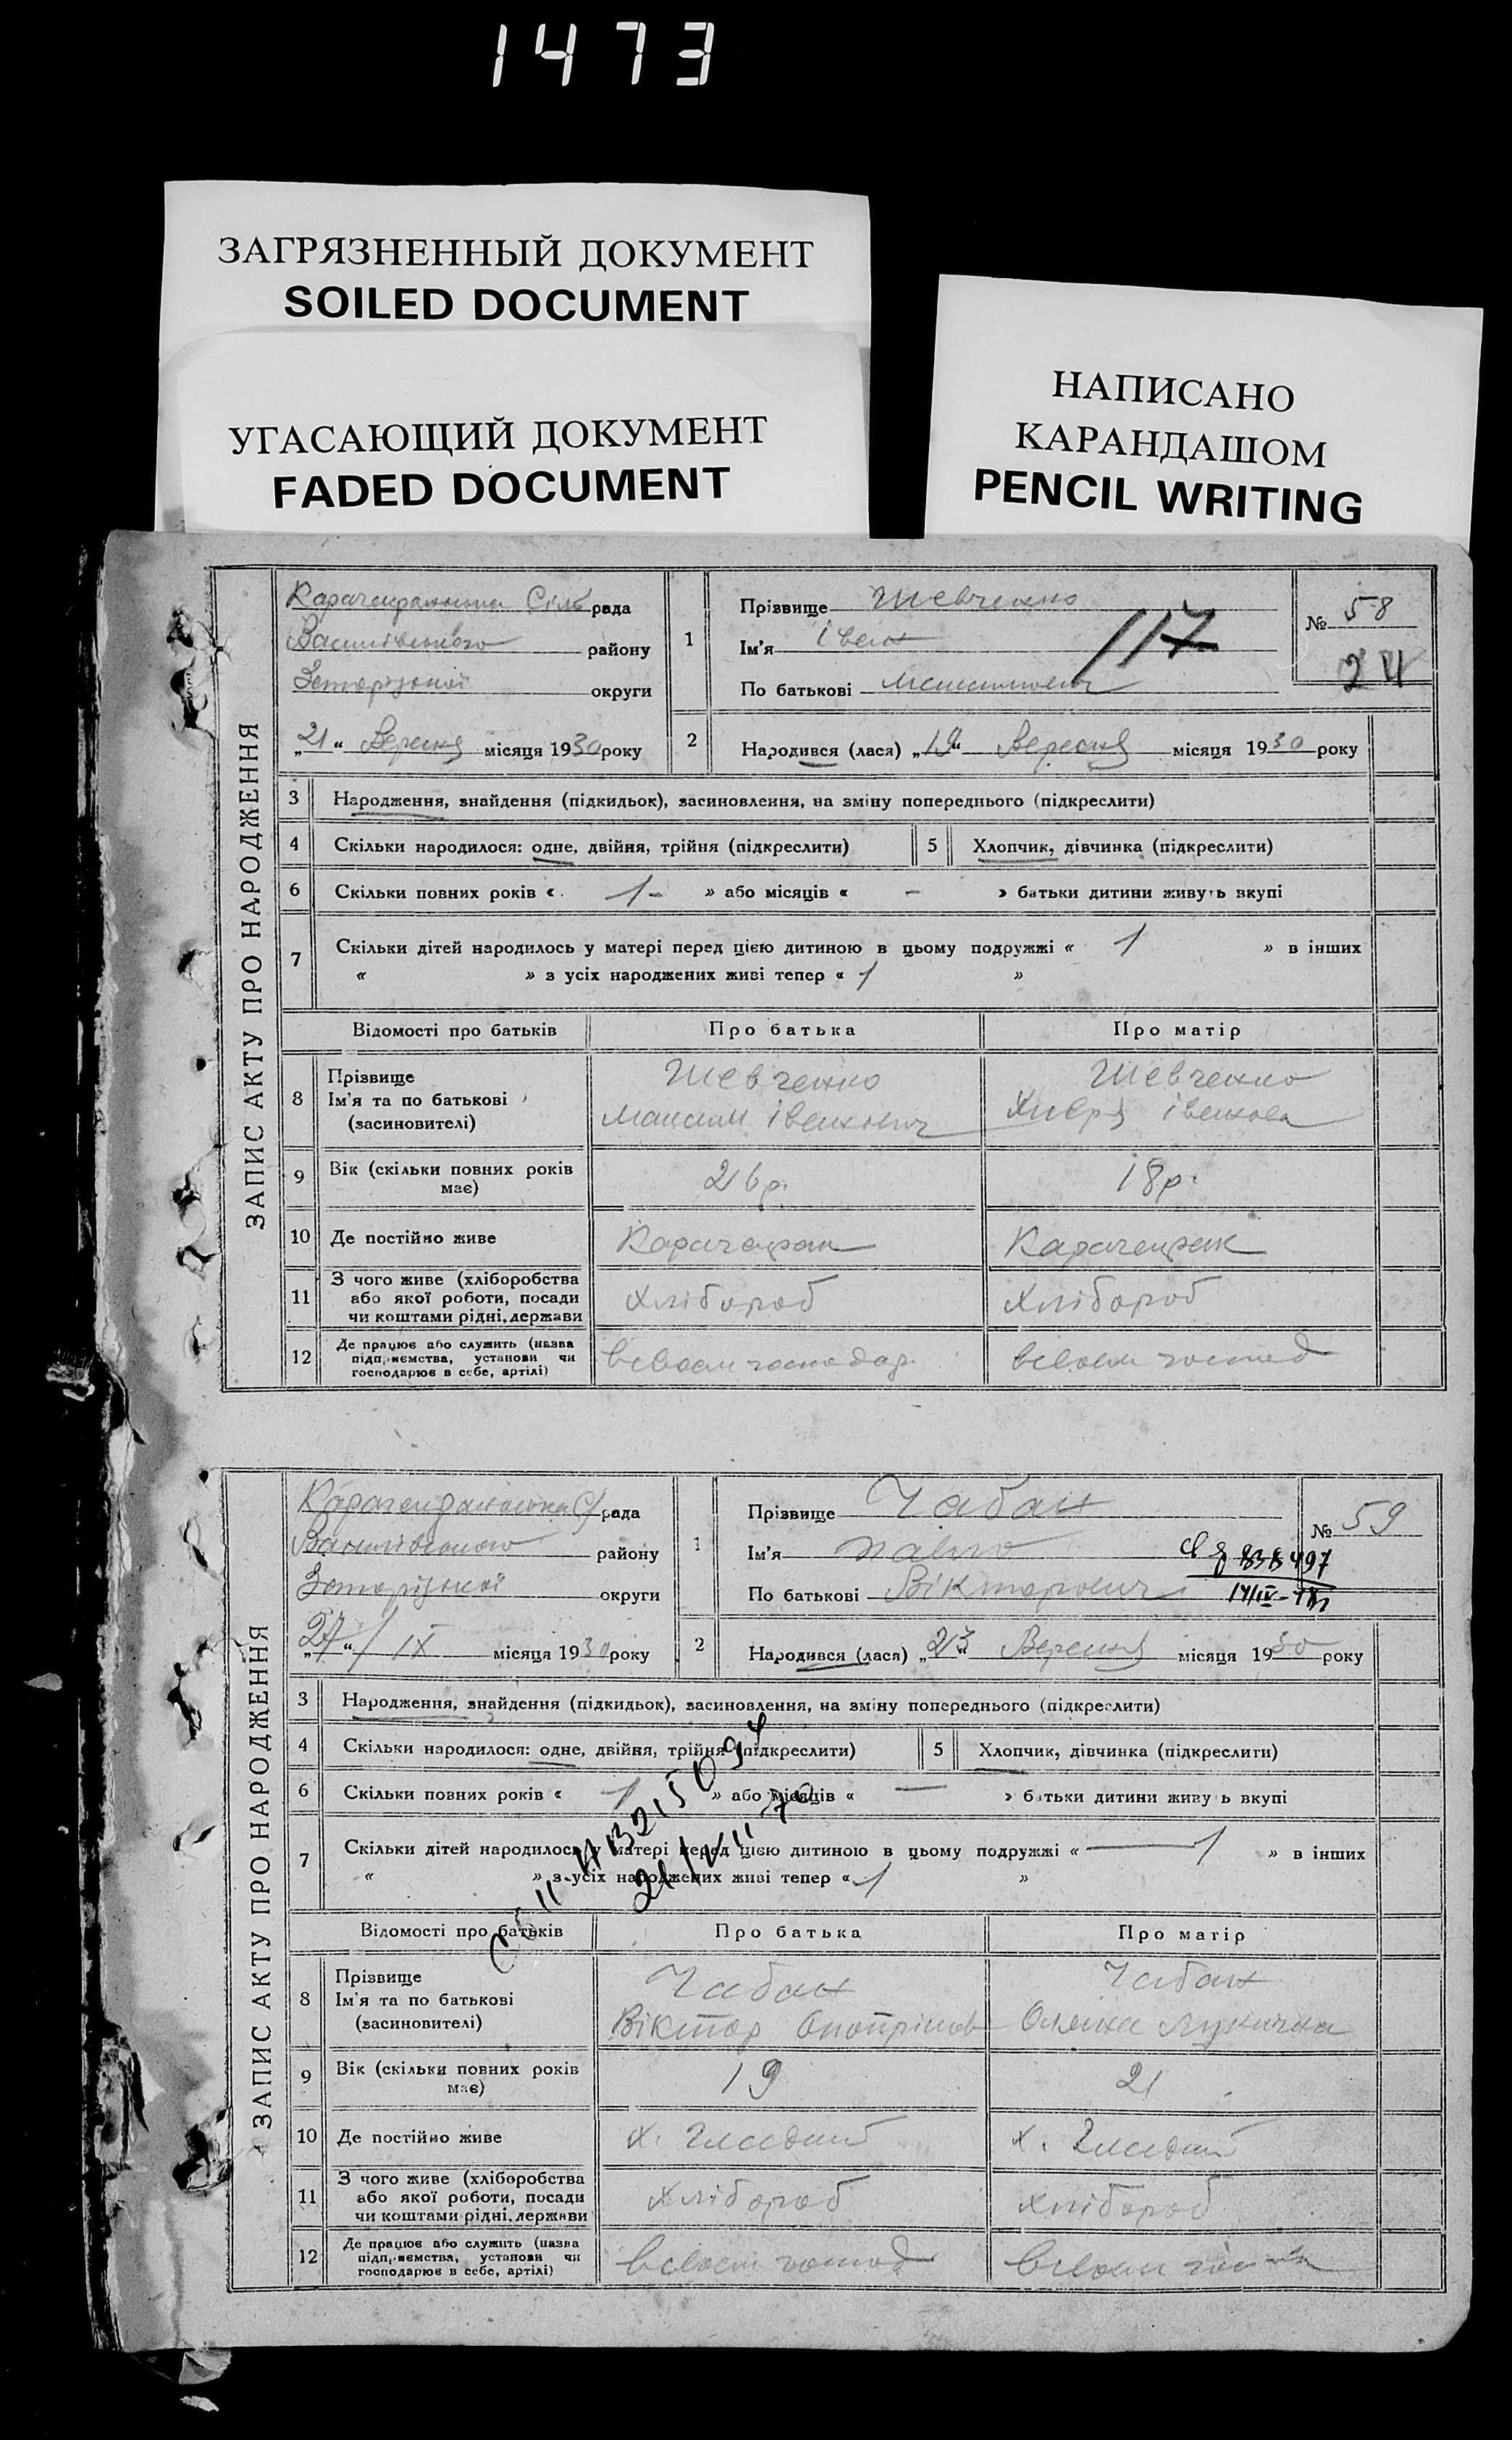 1473
ЗАГРЯЗНЕННЫЙ ДОКУМЕНТ
SOILED DOCUMENT
УГАСАЮЩИЙ ДОКУМЕНТ
FADED DOCUMENT
НАПИСАНО
КАРАНДАШОМ
PENCIL WRITING
ЗАПИС АКТУ ПРО НАРОДЖЕННЯ
Сіль рада
Василівського району
Запоріжської округи
„21“ Вересня місяця 1930 року
1 Прізвище Шевченко
Ім'я Іван
По батькові Максимович
117
№ 58
2 Народився (лася) „19“ Вересня місяця 1930 року
3 Народження, знайдення (підкидьок), засиновлення, на зміну попереднього (підкреслити)
4 Скільки народилося: одне, двійня, трійня (підкреслити) 5 Хлопчик, дівчинка (підкреслити)
6 Скільки повних років « 1- » або місяців « - » батьки дитини живуть вкупі
7 Скільки дітей народилось у матері перед цією дитиною в цьому подружжі « 1 » в інших
« » з усіх народжених живі тепер « 1 »
Відомості про батьків Про батька Про матір
8 Прізвище Шевченко Шевченко
Ім'я та по батькові Максим Іванович Хивря Іванова
(засиновителі)
9 Вік (скільки повних років має) 26 р. 18 р.
10 Де постійно живе Карачекрак Карачекрак
11 З чого живе (хліборобства
або якої роботи, посади Хлібороб Хлібороб
чи коштами рідні, держави
12 Де працює або служить (назва
підприємства, установи чи всвоєм господар. всвоєм господ
господарює в себе, артілі)
ЗАПИС АКТУ ПРО НАРОДЖЕННЯ
рада
Василівського району
Запоріжської округи
„27“ / IX місяця 1930 року
1 Прізвище Чабан
Ім'я Павло
По батькові Вікторович
№ 59
2 Народився (лася) „23“ Вересня місяця 1930 року
3 Народження, знайдення (підкидьок), засиновлення, на зміну попереднього (підкреслити)
4 Скільки народилося: одне, двійня, трійня (підкреслити) 5 Хлопчик, дівчинка (підкреслити)
6 Скільки повних років « 1 » або місяців « — » батьки дитини живуть вкупі
7 Скільки дітей народилось у матері перед цією дитиною в цьому подружжі « — 1 » в інших
« » з усіх народжених живі тепер « 1 »
Відомості про батьків Про батька Про матір
8 Прізвище Чабан Чабан
Ім'я та по батькові Віктор Онопріїов
(засиновителі)
9 Вік (скільки повних років має) 19 21
10 Де постійно живе х. х.
11 З чого живе (хліборобства
або якої роботи, посади Хлібороб Хлібороб
чи коштами рідні, держави
12 Де працює або служить (назва
підприємства, установи чи всвоєм господ всвоєм
господарює в себе, артілі)